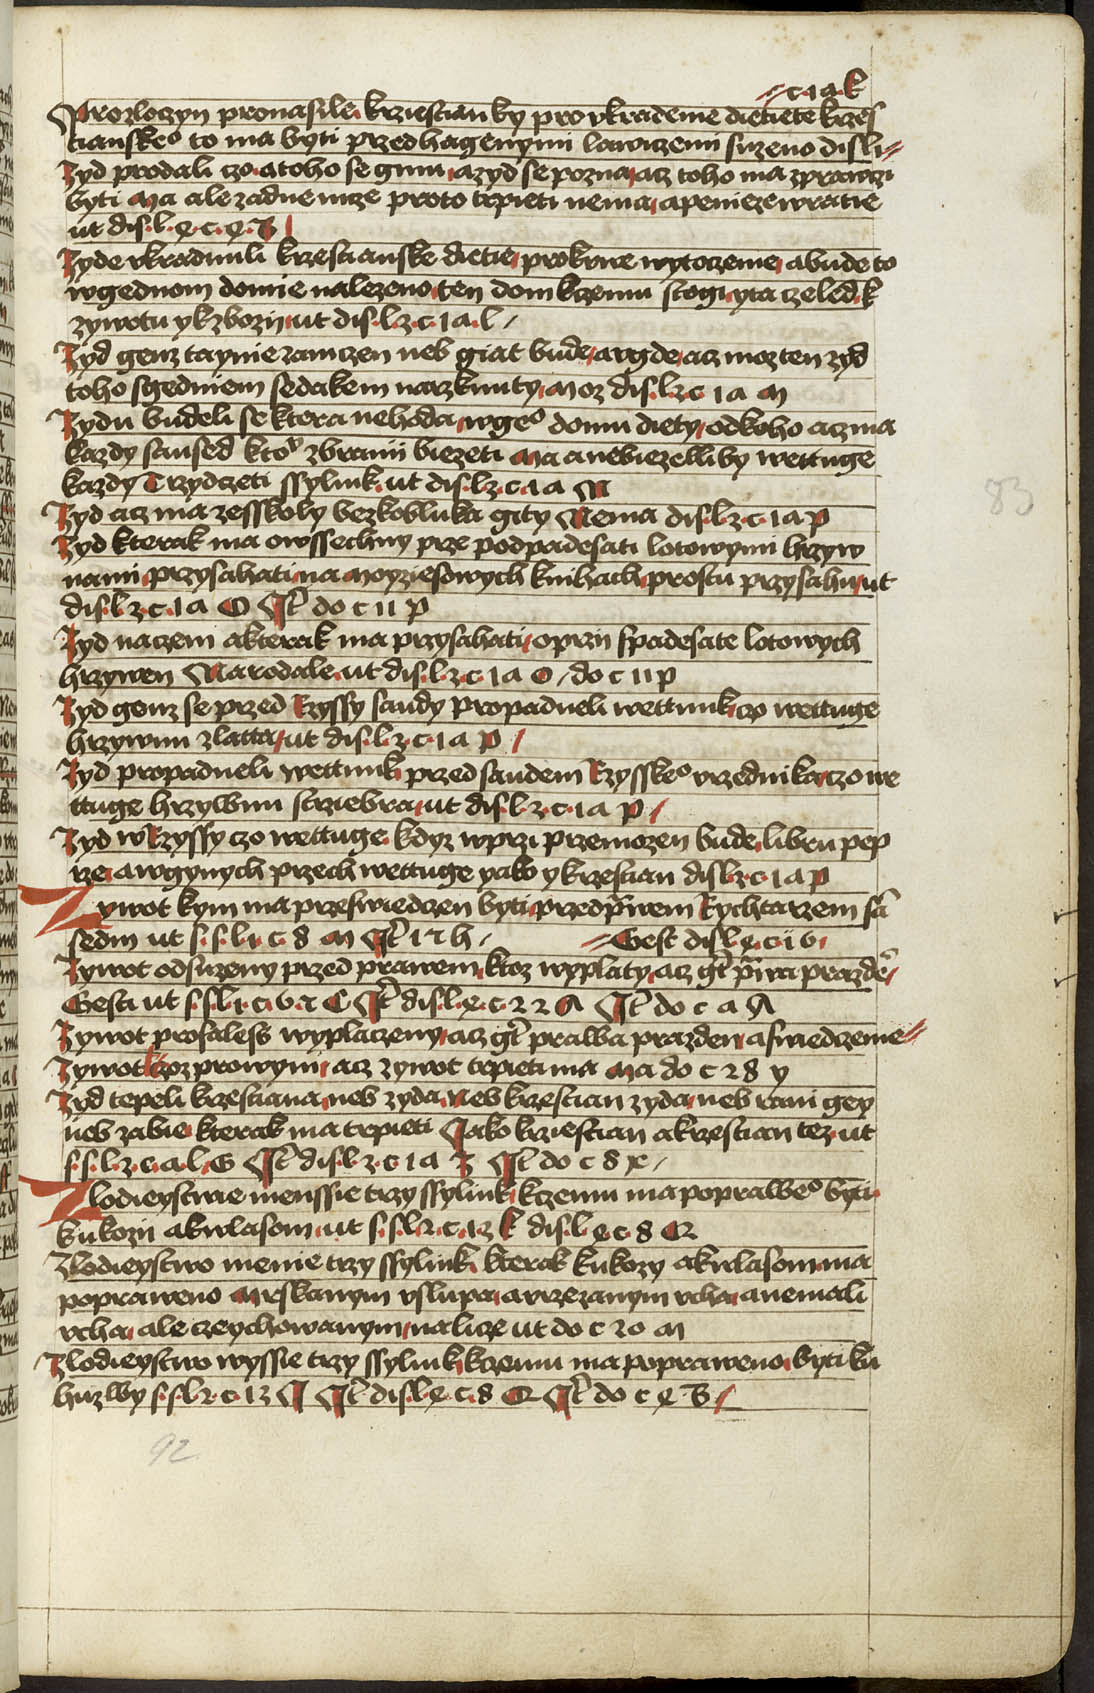 c·ia·k
Prozloczyn pronasile krziestian by pro vkradenie dietiete krzes
tianskeo to ma byti przed hagenymi lawiczemi suzeno dis·li·
Zyd prodali czo atoho se gmu azyd se pozna acz toho ma zprawczi
byti Ma ale zadne nuze proto trpieti nema apenieze wratie
ut dis·l·e·c·e·B
Zyde vkradnuli krzestianske dietie prokrwe wytoczenie abude to
wgednom domie nalezeno ten dom kczemu stogi yta czeled k
zywotu yk zbozij ut dis·l·z·c·ia·l
Zyd genz taynie zamczen neb giat bude awgde acz moz ten zyd
toho sgedniem sedakem naczknuty moz dis·l·z·c·ia m
Zydu budeli se ktera nehoda wgeo domu diety odkoho acz ma
kazdy saused kto zbranij biezeti Ma anebiezelliby wettuge
kazdy Trzydczeti ssylink ut dis·l·z·c·ia N
Zyd acz ma zesskoly bezkobluka gity Nema dis·l·z·c·ia p
Zyd kterak ma owssechny prze podpadesati lotowymi hrzyw
nami przysahati na Moyziesowych knihach prostu przysahu ut
dis·l·z·c·ia O It do c ii p
Zyd naczem akterak ma przysahati oprzij spadesate lotowych
hrzywen Narodale ut dis·l·z·c·ia O do c ii p
Zyd genz se przed Rzyssy saudy propadneli wettunk czo wettuge
hrzywnu zlatta ut dis·l·z·c·ia p
Zyd propadneli wettunk przed saudem Rzysskeo vrzednika czo we
ttuge hrzywnu strziebra ut dis·l·z·c·ia p
Zyd wRzyssy czo wettuge kdyz wprzi przemozen bude libru pep
rze awgynych przech wettuge yako ykrzestian dislz·c·ia p
Zywot kym ma przeswiedczen byti przed prwem Rychtarzem sa
sedm ut s·s·l·i·c·8 m It i z h Gest dis·l·e·c·i6
Zywot odsuzeny przed prawem ktoz wyplaty acz gt prwa prazden
Gesta ut s·s·l·i·c·6·z C It dis·l·e·c·22 A It do c a A
Zywot profaless wyplaczeny acz gt prawa prazden aswiedczenie
Zywot kczoz prowym acz zywot trpieti ma Ma do c 28 y
Zyd tepeli krzestiana neb zyda Neb krzestian zyda neb rani gey
neb zabie kterak ma trpieti Jako krziestian akrzestian tez ut
s·s·l·z·c·a·l·G It dis·l·z·c·ia Z It do c 8 x
Zlodieystwie menssie trzy ssylink kczemu ma poprawoo byti
kukozij akwlasom ut s·s·l·z·c·iz k dis·l·e·c·8 Q
Zlodieystwo menie trzy ssylink kterak kukozy akwlasom ma
popraweno Mrskanym vslupa avrzezanym vcha anemali
vcha ale czeychowanym nalicze ut do c 20 m
Zlodieystwo wyssie trzy ssylink kczemu ma poprawено byti ku
huzwy s·s·l·z·c·iz I It dis·l·e·c·8 Q It do c e B
83
92